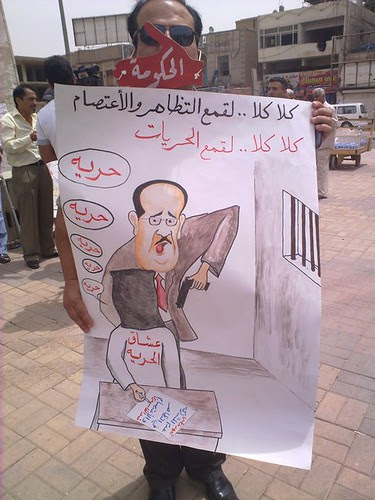 الحكومة
كلا كلا .. لقمع التظاهر والأعتصام
كلا كلا .. لقمع الحريات
حريه
حريه
حريه
حريه
حريه
عشاق
الحريه